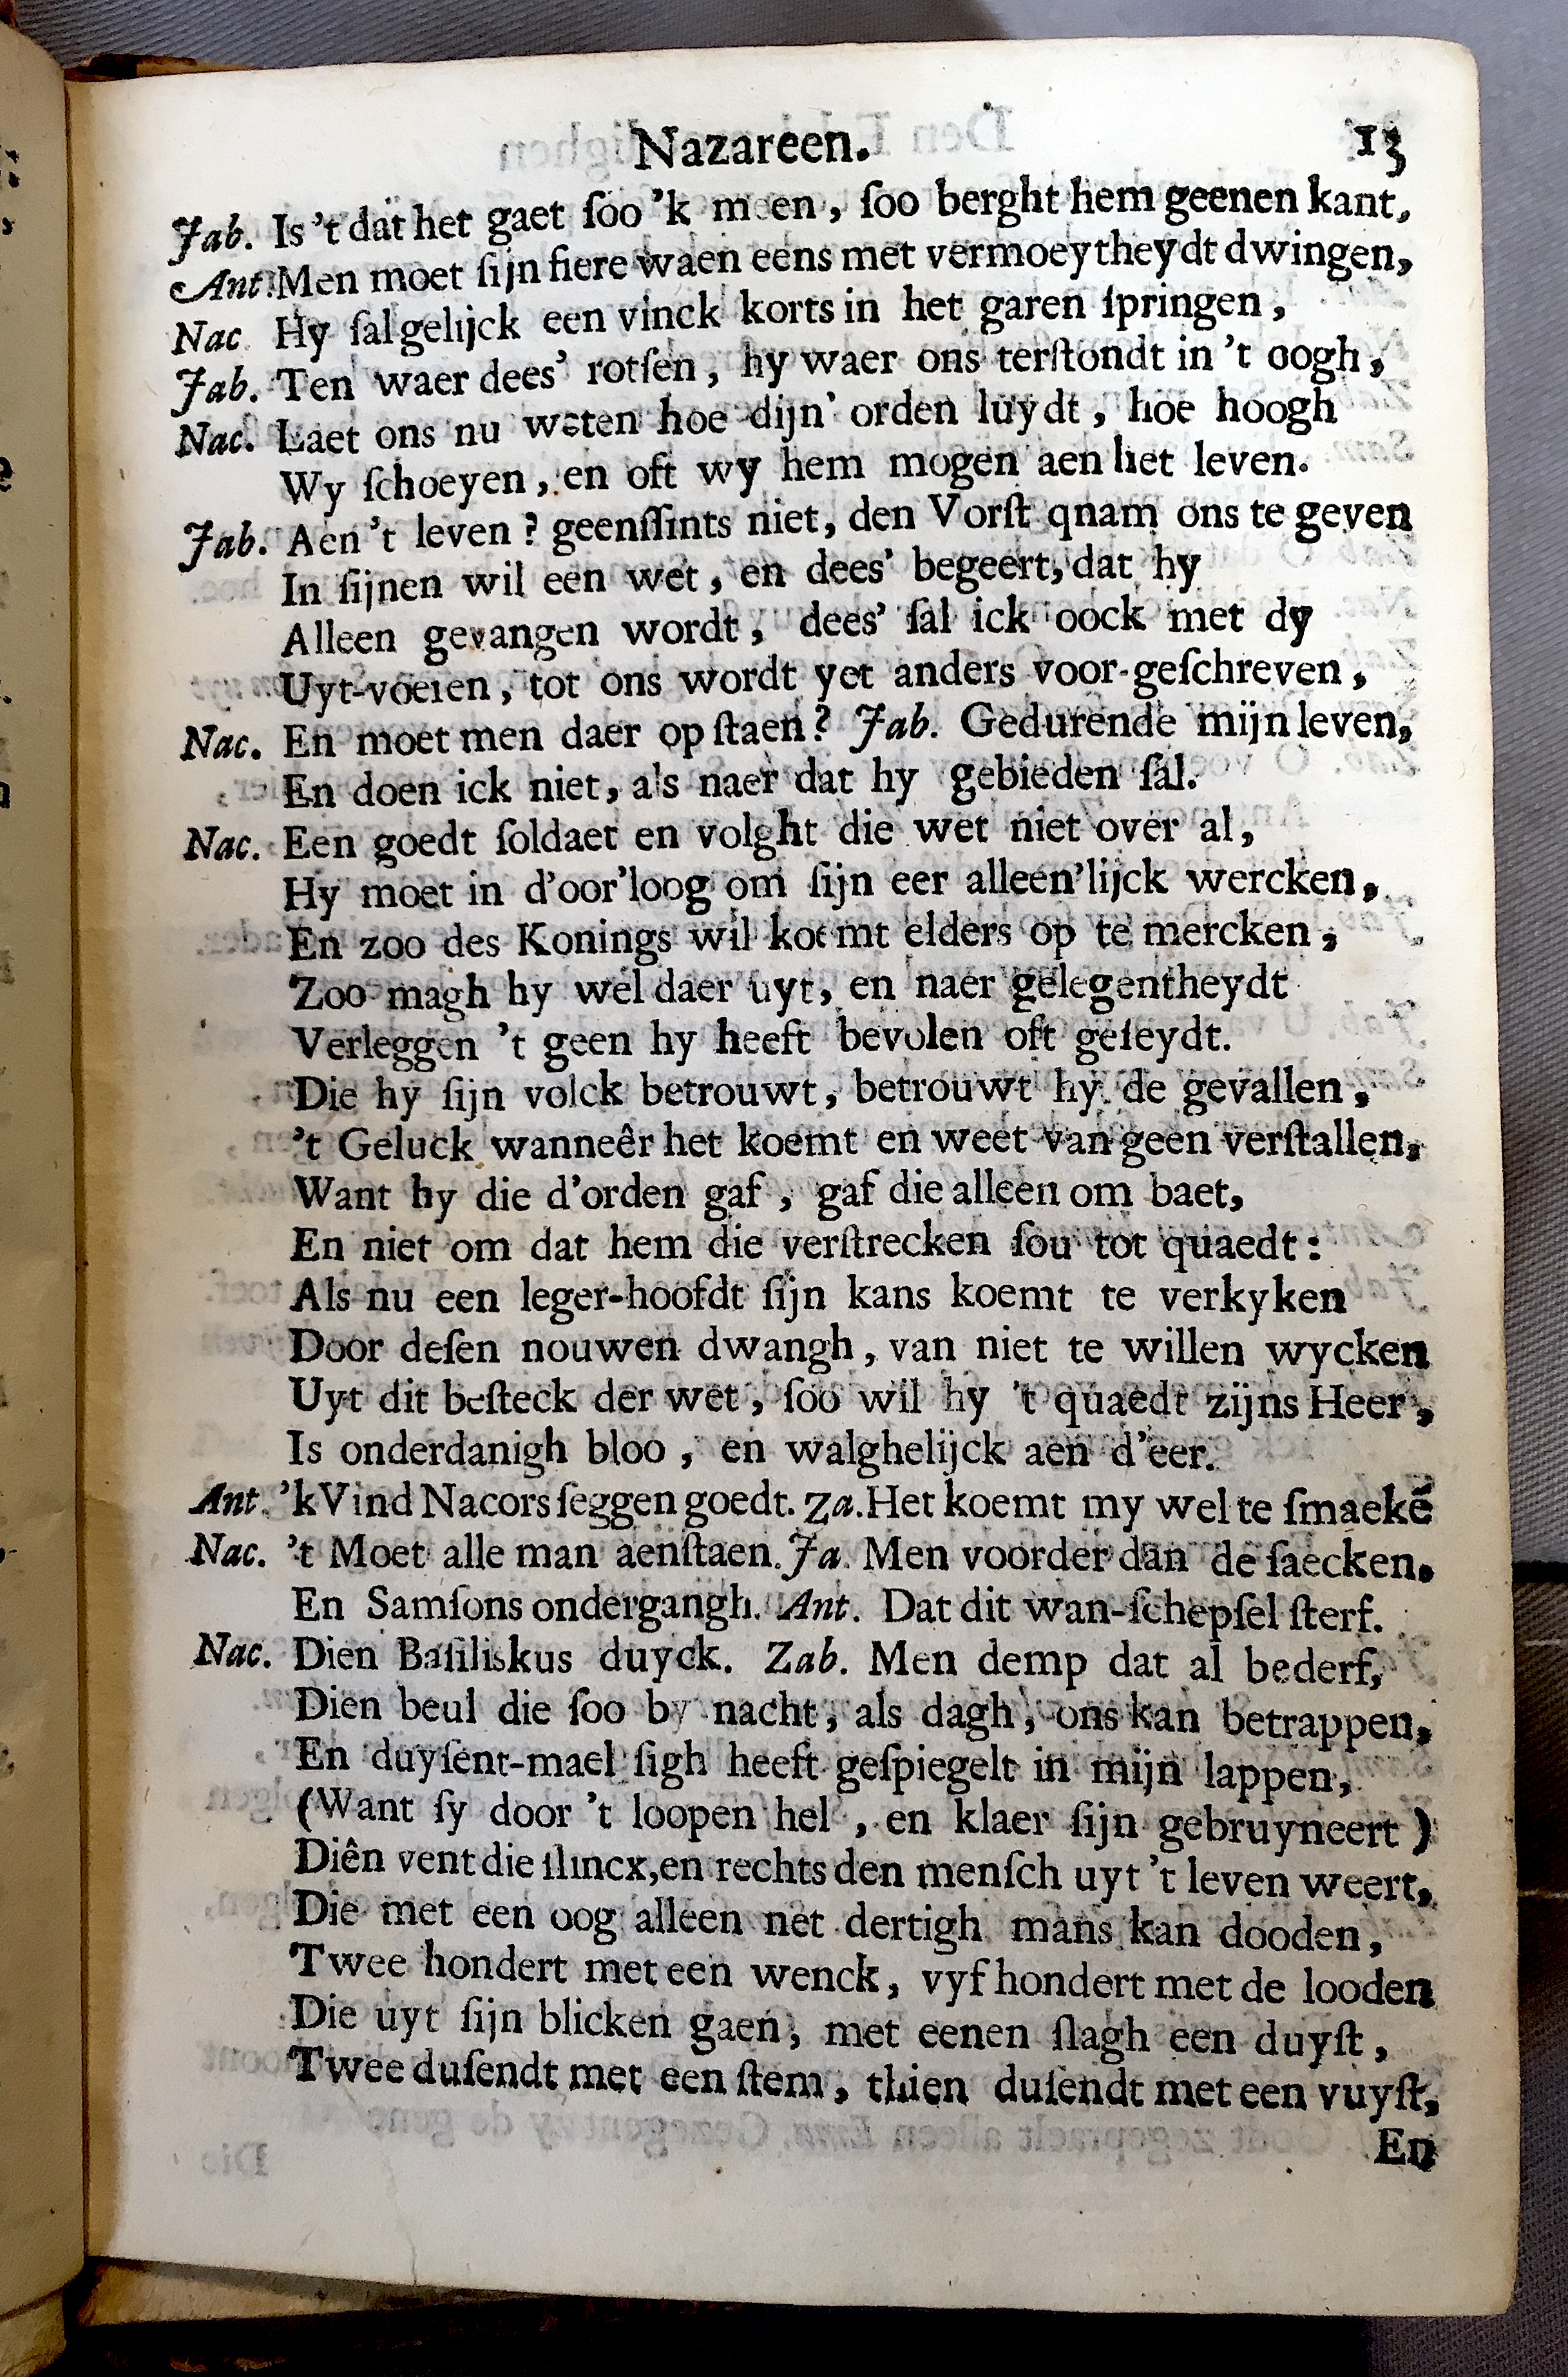 Nazareen. 13
Jab. Is 't dat het gaet ſoo 'k meen, ſoo berght hem geenen kant,
Ant. Men moet ſijn fiere waen eens met vermoeytheydt dwingen,
Nac. Hy ſal gelijck een vinck korts in het garen ſpringen,
Jab. Ten waer dees' rotſen, hy waer ons terſtondt in 't oogh,
Nac. Laet ons nu weten hoe dijn' orden luydt, hoe hoogh
Wy ſchoeyen, en oft wy hem mogen aen het leven.
Jab. Aen 't leven? geenſſints niet, den Vorſt qnam ons te geven
In ſijnen wil een wet, en dees' begeert, dat hy
Alleen gevangen wordt, dees' ſal ick oock met dy
Uyt-voeren, tot ons wordt yet anders voor-geſchreven,
Nac. En moet men daer op ſtaen? Jab. Gedurende mijn leven,
En doen ick niet, als naer dat hy gebieden ſal.
Nac. Een goedt ſoldaet en volght die wet niet over al,
Hy moet in d'oor'loog om ſijn eer alleen'lijck wercken,
En zoo des Konings wil koemt elders op te mercken,
Zoo magh hy wel daer uyt, en naer gelegentheydt
Verleggen 't geen hy heeft bevolen oft geſeydt.
Die hy ſijn volck betrouwt, betrouwt hy de gevallen,
't Geluck wanneêr het koemt en weet van geen verſtallen,
Want hy die d'orden gaf, gaf die alleen om baet,
En niet om dat hem die verſtrecken ſou tot quaedt:
Als nu een leger-hoofdt ſijn kans koemt te verkyken
Door deſen nouwen dwangh, van niet te willen wycken
Uyt dit beſteck der wet, ſoo wil hy 't quaedt zijns Heer,
Is onderdanigh bloo, en walghelijck aen d'eer.
Ant. 'k Vind Nacors ſeggen goedt. Za. Het koemt my wel te ſmaekē
Nac. 't Moet alle man aenſtaen. Ja. Men voorder dan de ſaecken.
En Samſons ondergangh. Ant. Dat dit wan-ſchepſel ſterf.
Nac. Dien Baſiliskus duyck. Zab. Men demp dat al bederf,
Dien beul die ſoo by nacht, als dagh, ons kan betrappen,
En duyſent-mael ſigh heeft geſpiegelt in mijn lappen,
(Want ſy door 't loopen hel, en klaer ſijn gebruyneert)
Diên vent die ſlincx, en rechts den menſch uyt 't leven weert,
Die met een oog alleen net dertigh mans kan dooden,
Twee hondert met een wenck, vyf hondert met de looden
Die uyt ſijn blicken gaen, met eenen ſlagh een duyſt,
Twee duſendt met een ſtem, thien duſendt met een vuyſt,
En